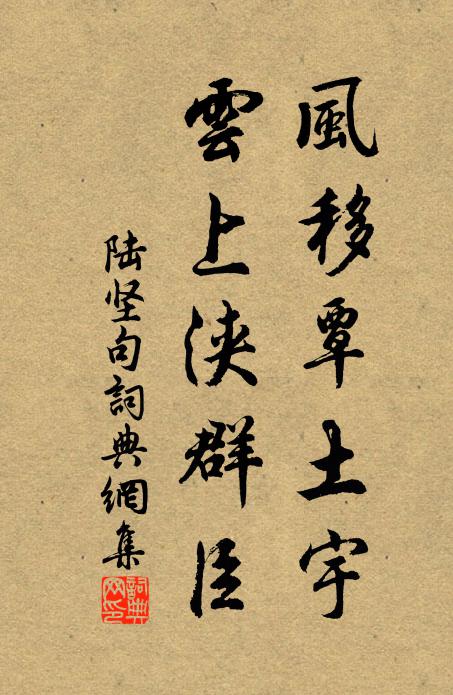 風移覃土宇
雲上浹群臣
陆坚句詞典網集
詞典网印